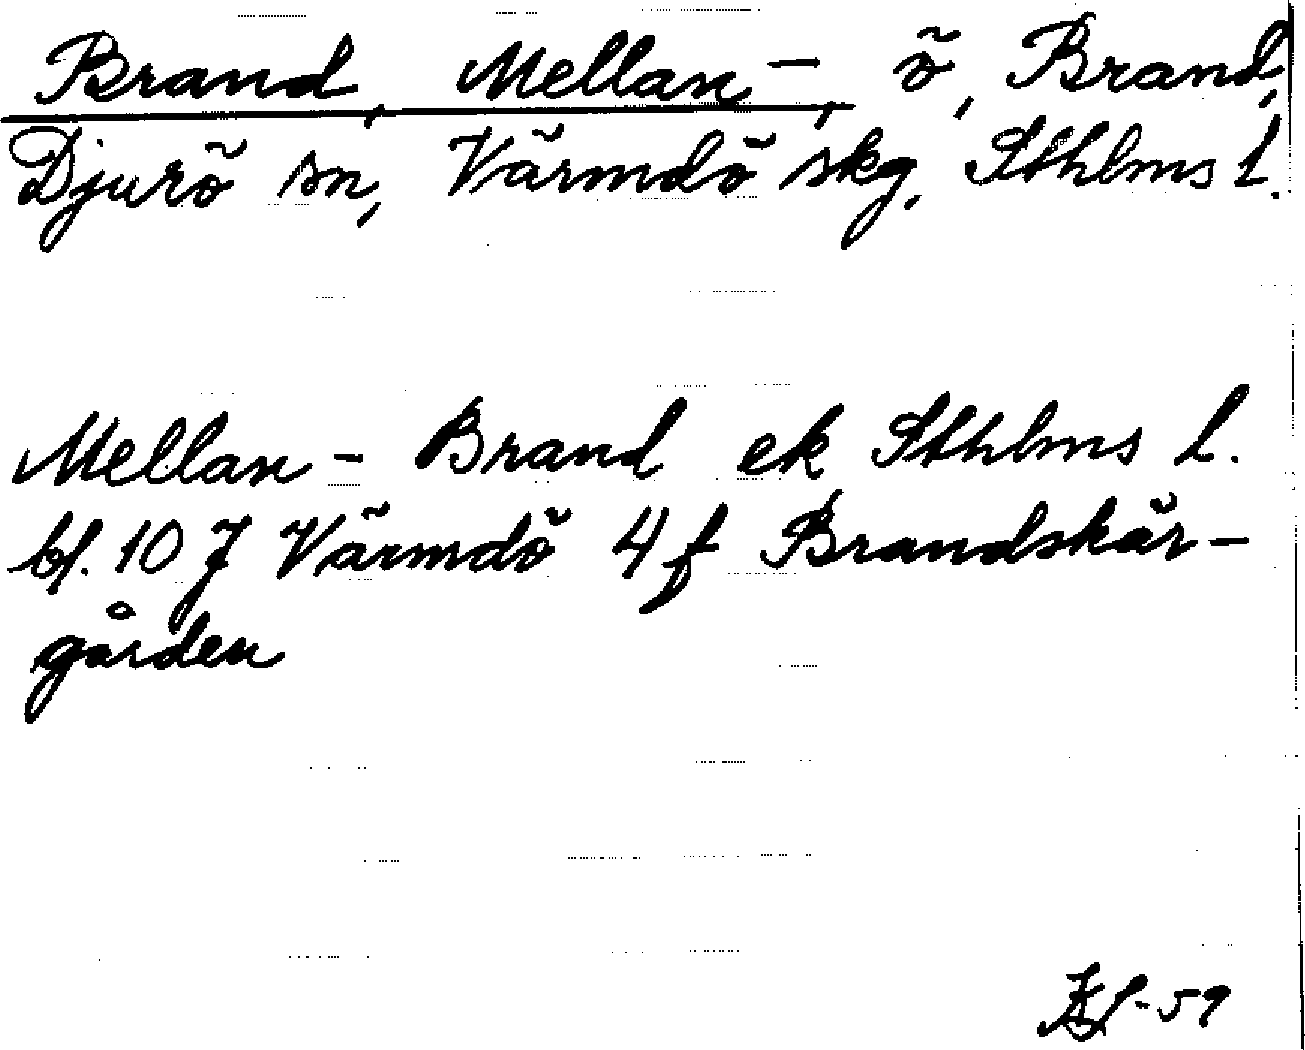 Brand, Mellan-, ö, Brand,
Djurö sn, Värmdö skg, Sthlms l.
Mellan-Brand ek Sthlms l.
bl. 10 J Värmdö 4 f Brandskär-
gården
-59